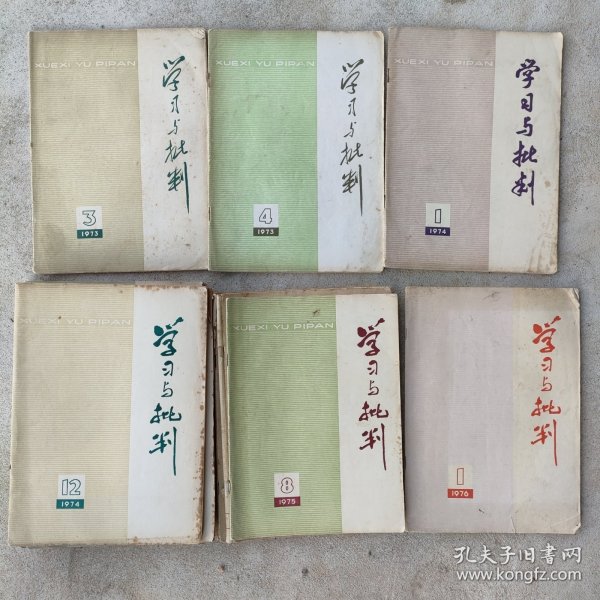 XUEXI YU PIPAN
学习与批判
3
1973
XUEXI YU PIPAN
学习与批判
4
1973
XUEXI YU PIPAN
学习与批判
1
1974
XUEXI YU PIPAN
学习与批判
12
1974
XUEXI YU PIPAN
学习与批判
8
1975
学习与批判
1
1976
孔夫子旧书网
www.kongfz.com